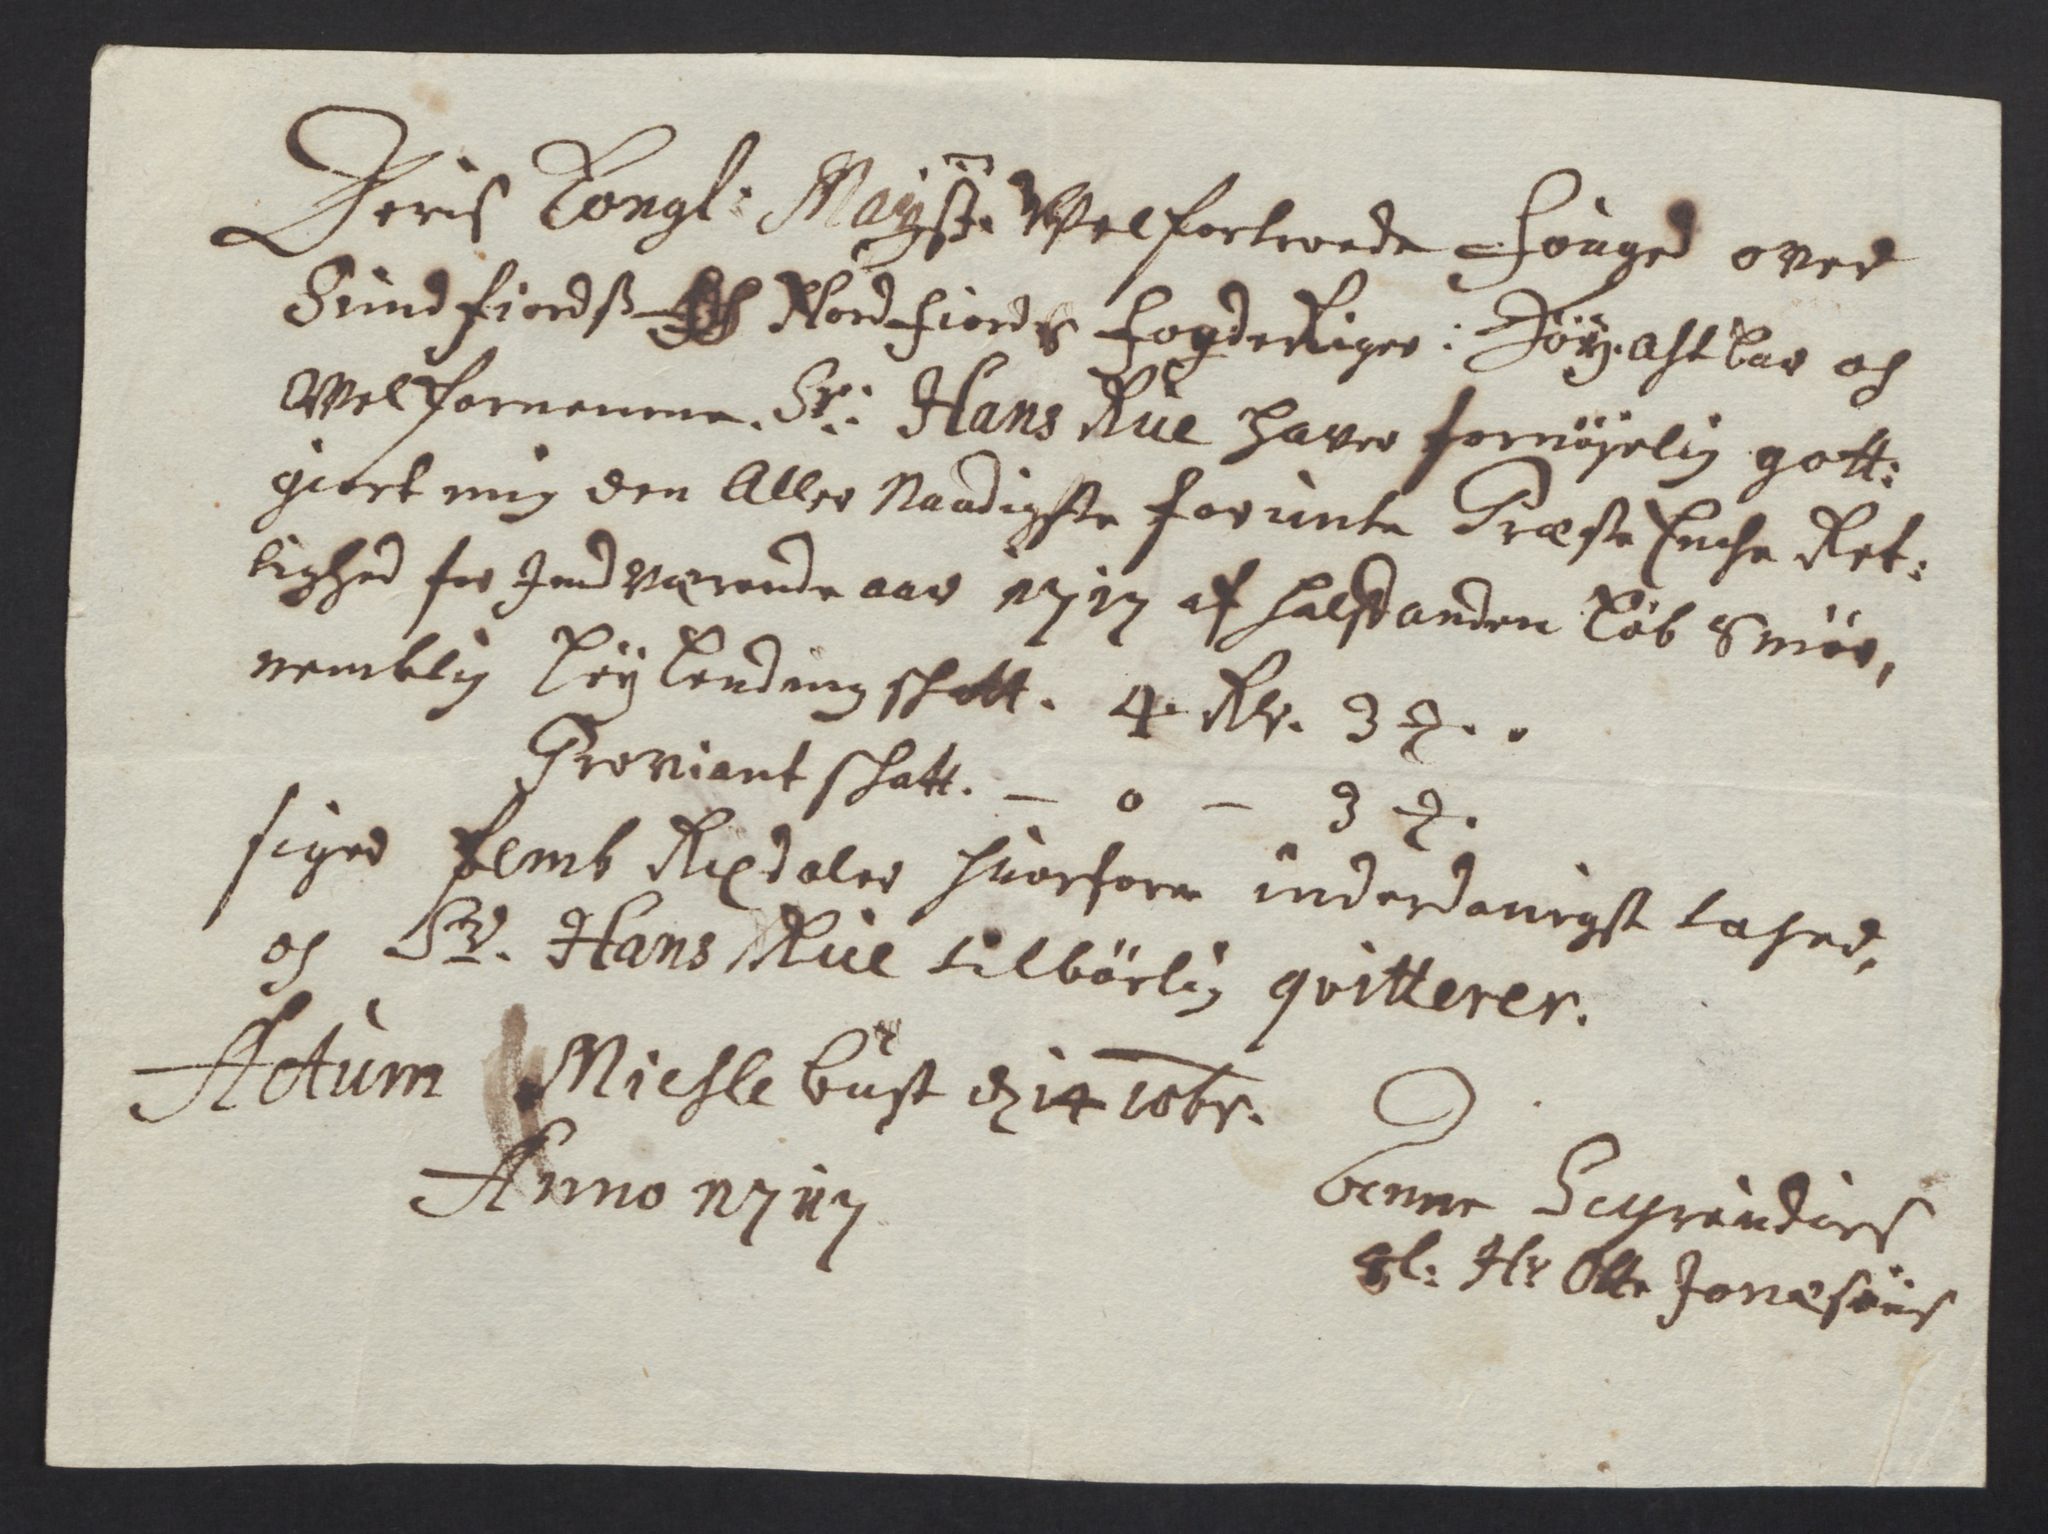 Deris Kongl: Mayst: Velfortroede Fouged over
Sundfiordß og Nordfiords Fogderiger: Höÿ.acht bar och
Velfornemme. Sr: Hans Rue haver fornöjelig gott:
giort mig den Aller Naadigste forunte Præste Enche Ret:
lighed for Indværende aar 1717 af halfanden löb Smör,
nemblig leÿlending schatt. 4. Rd. 3 .
Proviant schatt. – 0 – 3 .
siger femb Rixdaler huorfore underdanigst tacher,
och Sr. Hans Rue tilbörlig qvitterer.
Actum Michlebust d 14 10br.
Anno 1717
Benne
Sl: Hr Otte Jonæsöns